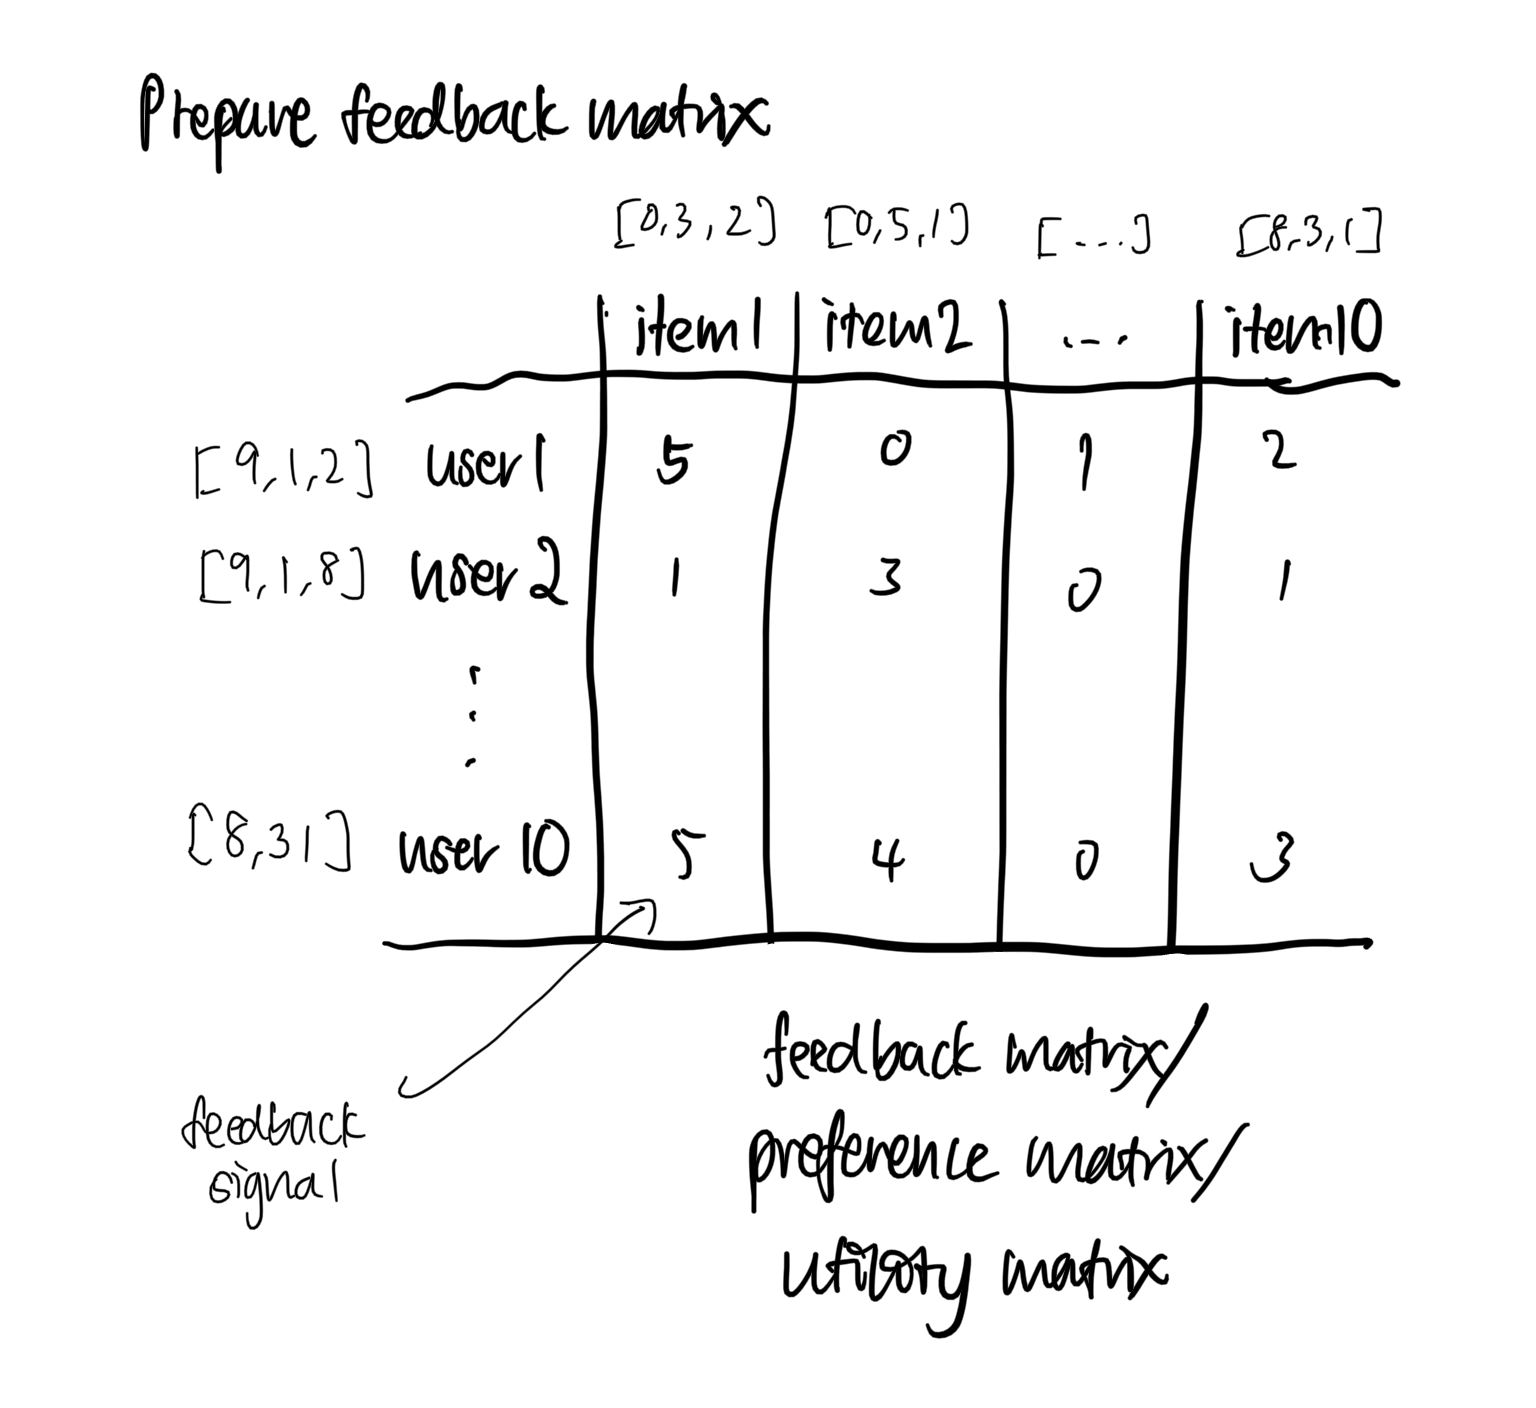 Prepare feedback matrix
[0,3,2] [0,5,1] [...] [8,3,1]
item1 item2 ... item10
[9,1,2] user1 5 0 1 2
[9,1,8] user2 1 3 0 1
⋮
[8,31] user 10 5 4 0 3
feedback matrix/
feedback
signal
preference matrix/
utility matrix